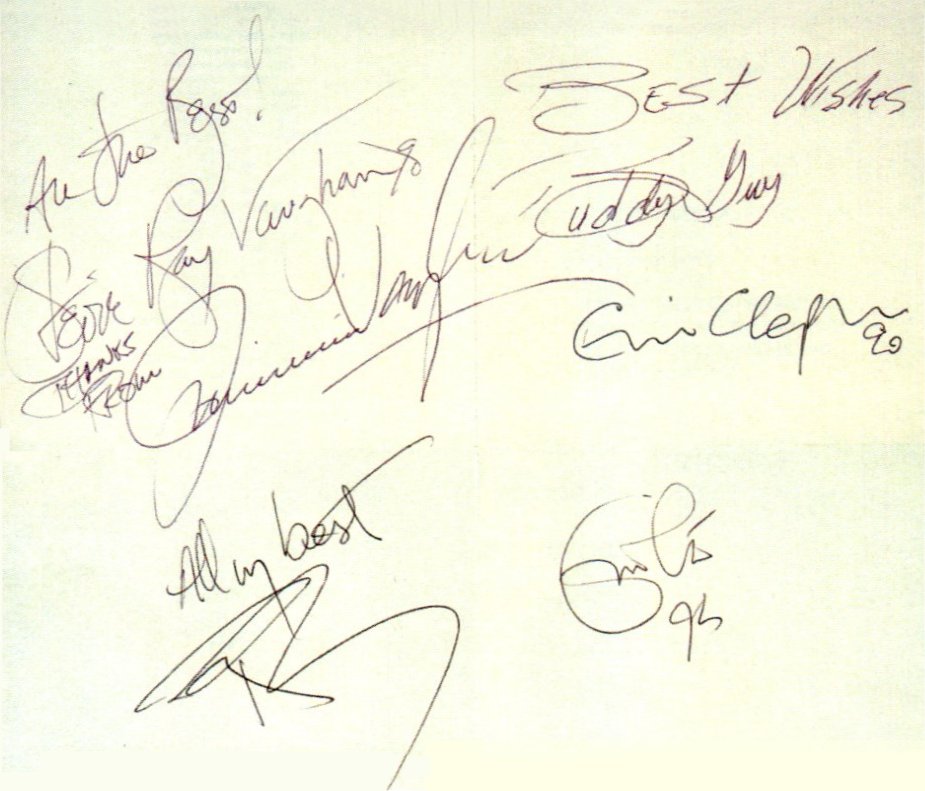 All the Best!
Stevie Ray Vaughan 90
THANKS
FROM
Jimmie Vaughan
BEST Wishes
Buddy Guy
Eric Clapton
90
All my best